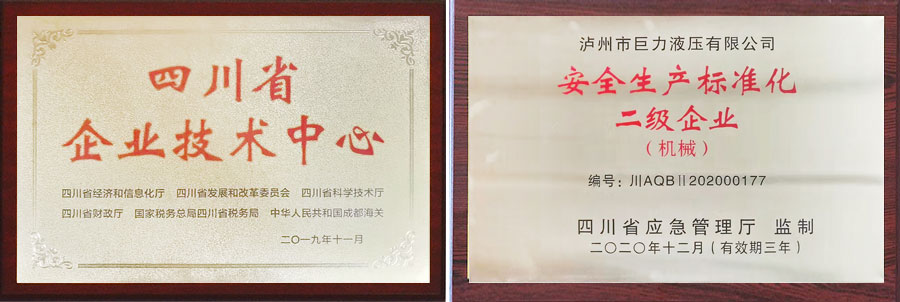 四川省
企业技术中心
四川省经济和信息化厅 四川省发展和改革委员会 四川省科学技术厅
四川省财政厅 国家税务总局四川省税务局 中华人民共和国成都海关
二〇一九年十一月
泸州市巨力液压有限公司
安全生产标准化
二级企业
（机械）
编号：川AQBⅡ202000177
四川省应急管理厅 监制
二〇二〇年十二月（有效期三年）